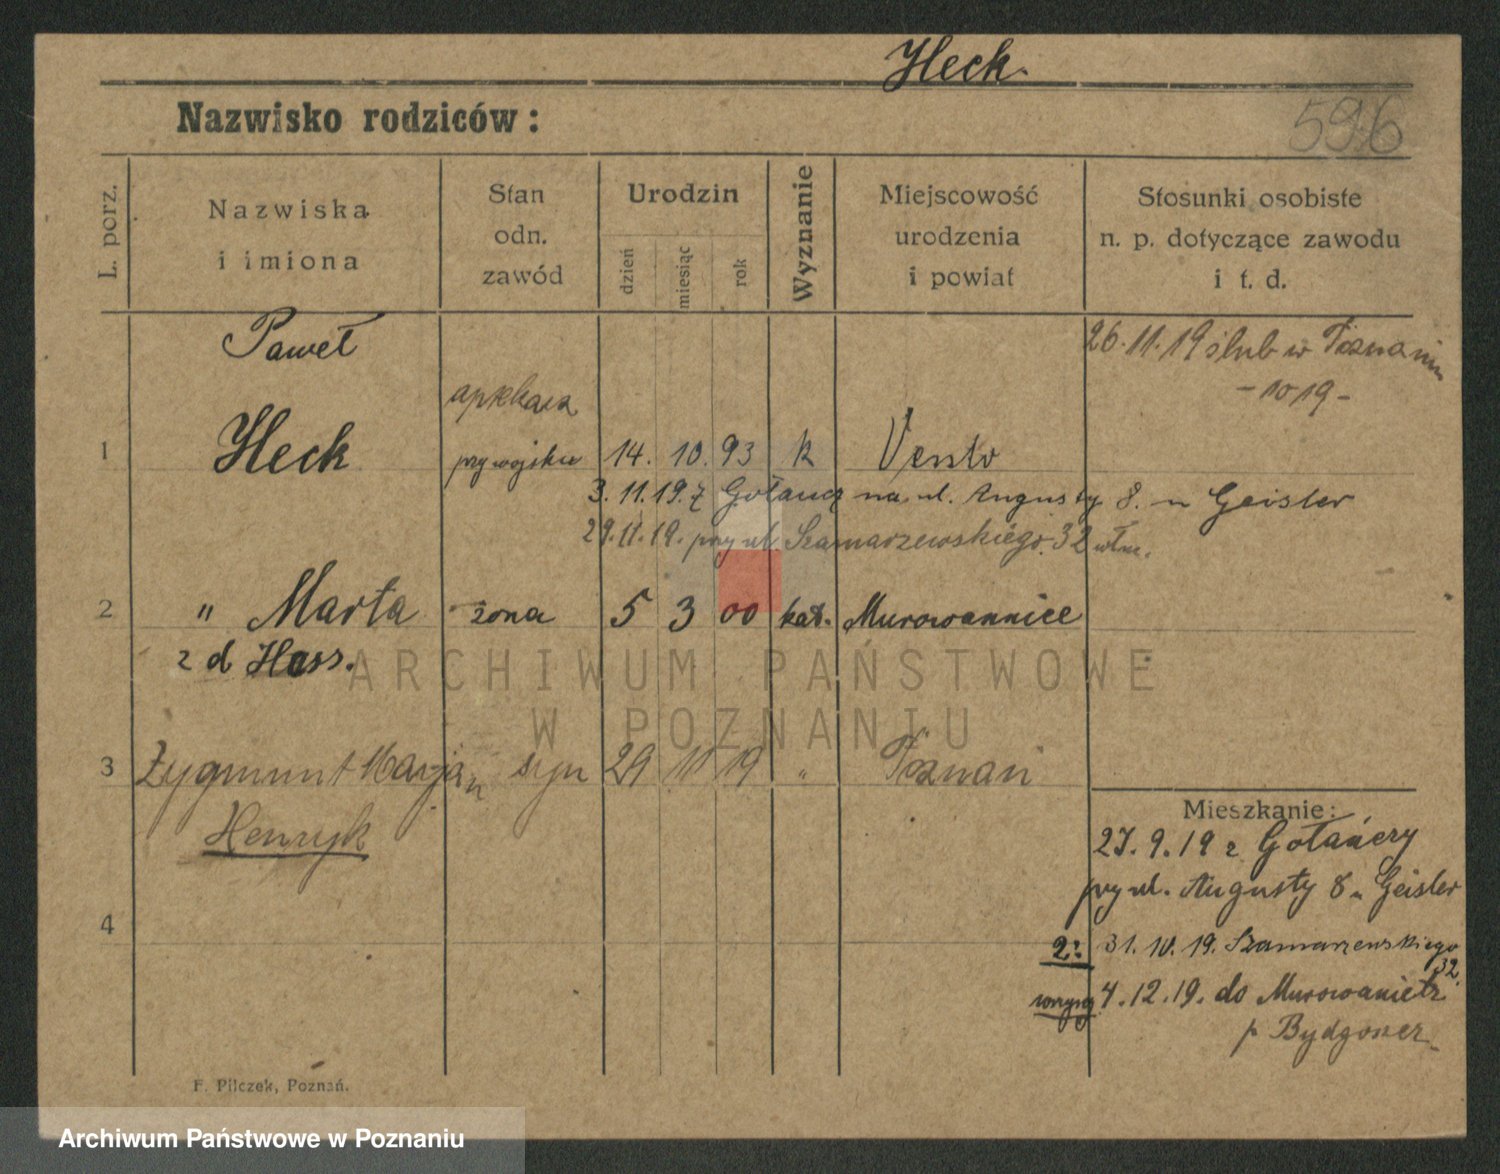 Heck.
Nazwisko rodziców:
596
L. porz.
Nazwiska
i imiona
Stan
odn.
zawód
Urodzin
dzień
miesiąc
rok
Wyznanie
Miejscowość
urodzenia
i powiat
Stosunki osobiste
n. p. dotyczące zawodu
i t. d.
Paweł
26.11.19 ślub w Poznaniu
- 1019 -
1 Heck przy wojsku 14. 10. 93 k
3.11.19. z Gołańcz na ul. Augusty 8. u Geisler
29.11.19. przy ul Szamarzewskiego 32 włas.
2 " Marta żona 5 3 00 kat. Murowannice
z d Hass.
ARCHIWUM PAŃSTWOWE
W POZNANIU
3 Zygmunt Marjan syn 29 10 19 " Poznań
Henryk
4
Mieszkanie:
27.9.19 z Gołańczy
przy ul. Augusty 8 u Geisler
2: 31.10.19. Szamarzewskiego
32.
wszyscy 4.12.19. do Murowaniec
p Bydgoszcz
F. Pilczek, Poznań.
Archiwum Państwowe w Poznaniu